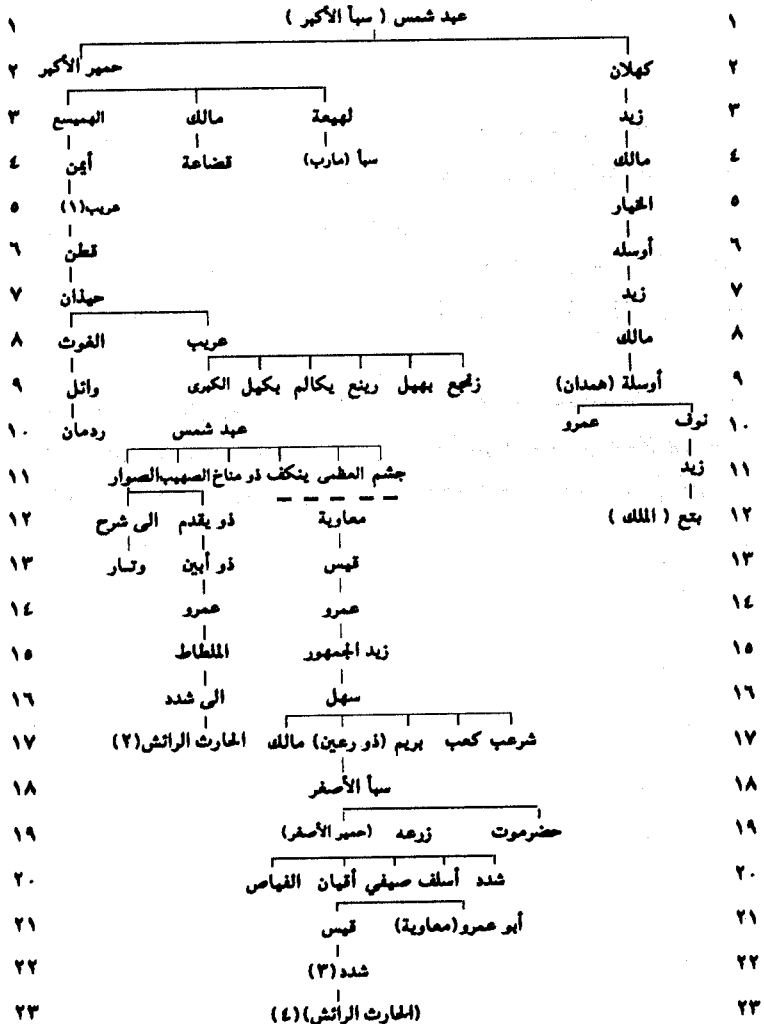 ١ عبد شمس ( سبأ الأكبر ) ١
٢ كهلان حمير الأكبر ٢
٣ زيد لهيعة مالك الهميسع ٣
٤ مالك سبأ (مارب) قضاعة أيمن ٤
٥ الخيار عريب(١) ٥
٦ أوسله قطن ٦
٧ زيد حيذان ٧
٨ مالك عريب الغوث ٨
٩ أوسلة (همدان) زنجع بهيل رينع يكالم بكيل الكبرى وائل ٩
١٠ نوف عمرو عبد شمس ردمان ١٠
١١ زيد جشم العظمى ينكف ذو مناخ الصهيب الصوار ١١
١٢ بتع ( الملك ) معاوية ذو يقدم الى شرح ١٢
١٣ قيس ذو أبين وتار ١٣
١٤ عمرو عمرو ١٤
١٥ زيد الجمهور الملطاط ١٥
١٦ سهل الى شدد ١٦
١٧ شرعب كعب بريم (ذو رعين) مالك الحارث الرائش(٢) ١٧
١٨ سبأ الأصغر ١٨
١٩ حضرموت زرعه (حمير الأصغر) ١٩
٢٠ شدد أسلف صيفي أقيان الفياص ٢٠
٢١ أبو عمرو(معاوية) قيس ٢١
٢٢ شدد(٣) ٢٢
٢٣ (الحارث الرائش)(٤) ٢٣